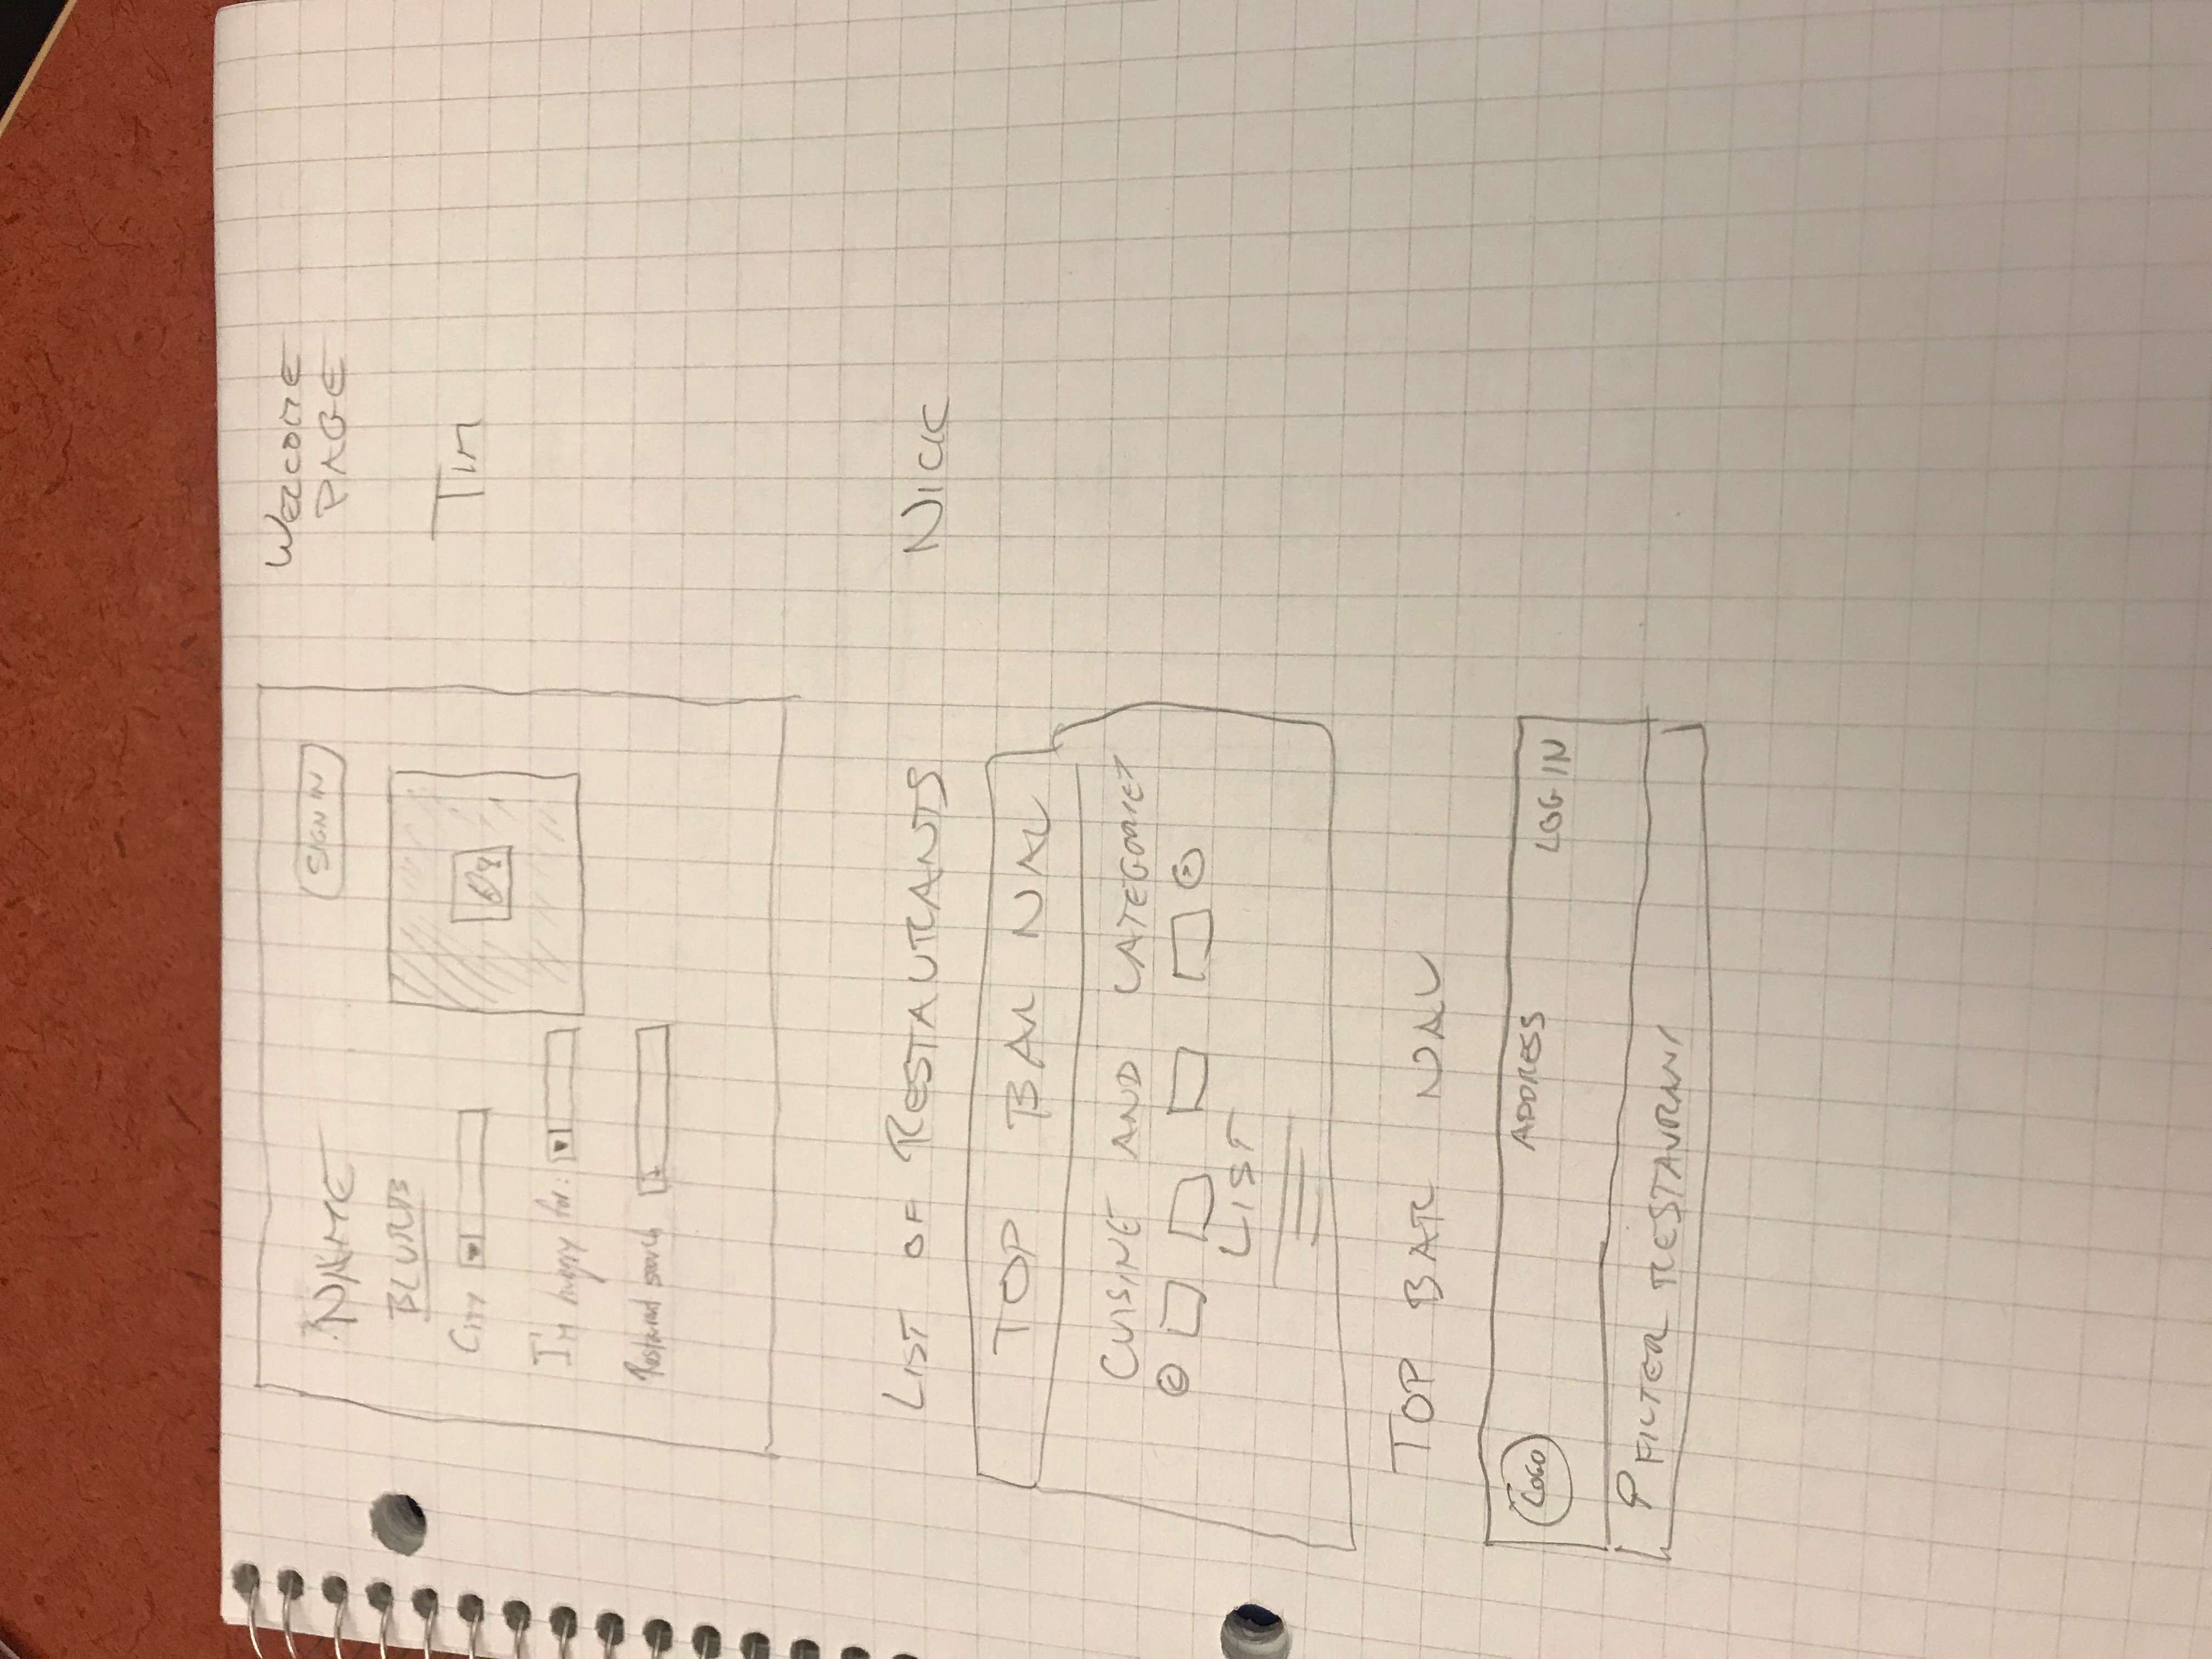 WELCOME
PAGE
TIM
NAME
SIGN IN
BLURB
City
I'm hungry for:
Restaurant search
LIST OF RESTAURANTS
NICK
TOP BAR NAV
CUISINE AND CATEGORIES
LIST
TOP BAR NAV
LOGO
ADDRESS
LOG IN
FILTER RESTAURANT